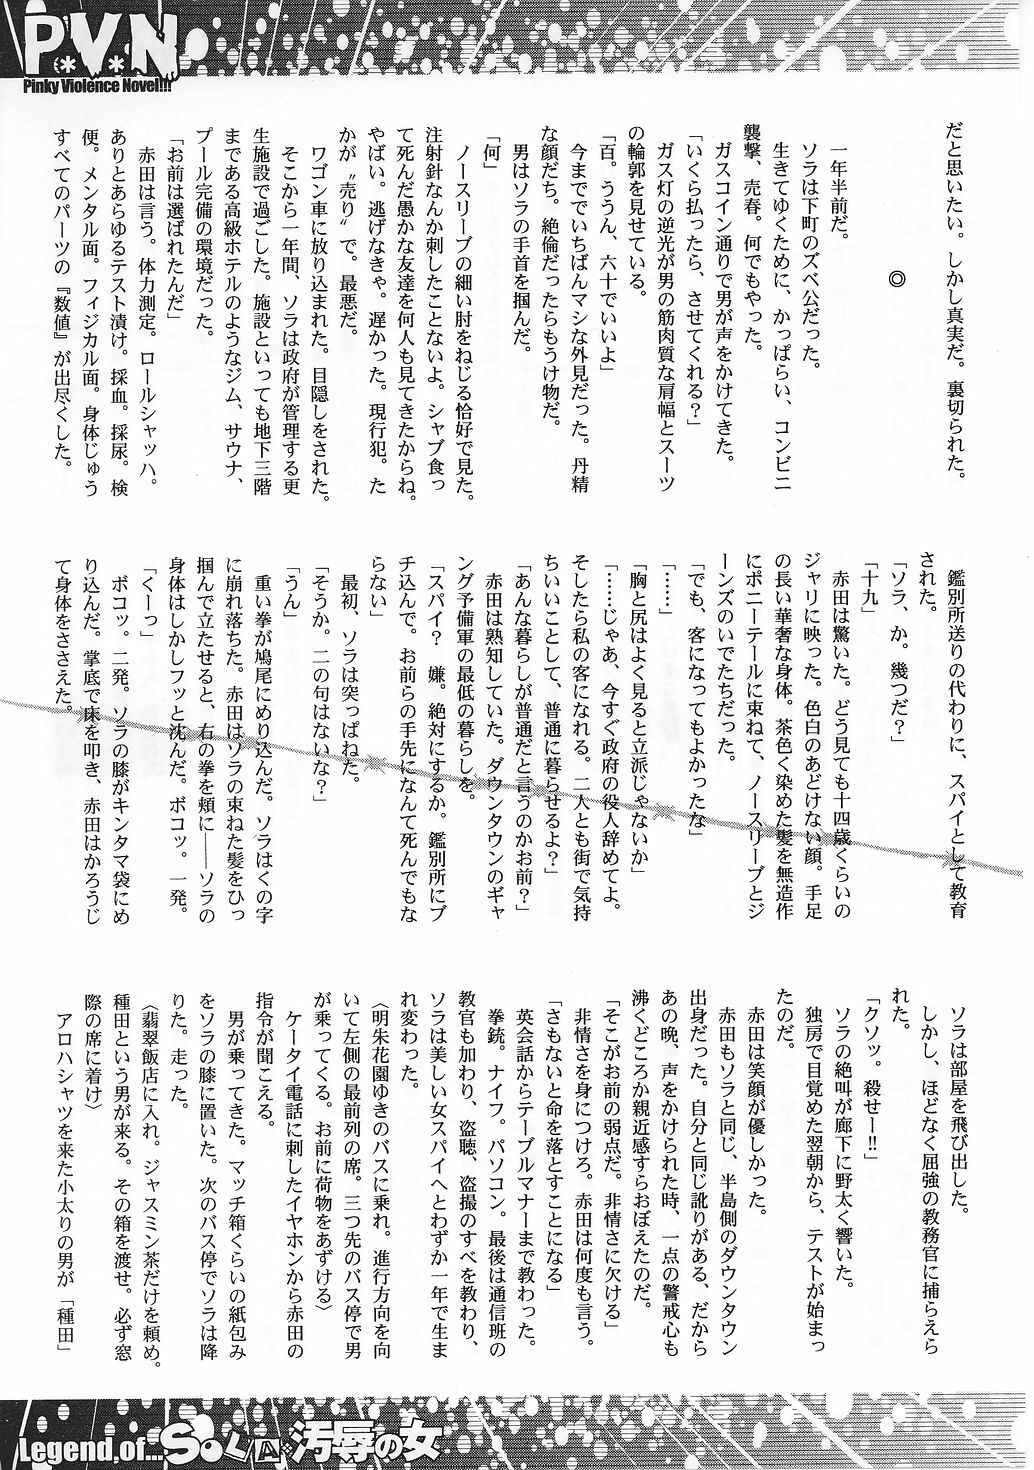 P.V.N
Pinky Violence Novel!!!
だと思いたい。しかし真実だ。裏切られた。
◎
一年半前だ。
ソラは下町のズベ公だった。
生きてゆくために、かっぱらい、コンビニ
襲撃、売春。何でもやった。
ガスコイン通りで男が声をかけてきた。
「いくら払ったら、させてくれる?」
ガス灯の逆光が男の筋肉質な肩幅とスーツ
の輪郭を見せている。
「百。ううん、六十でいいよ」
今まででいちばんマシな外見だった。丹精
な顔だち。絶倫だったらもうけ物だ。
男はソラの手首を掴んだ。
「何」
ノースリーブの細い肘をねじる恰好で見た。
注射針なんか刺したことないよ。シャブ食っ
て死んだ愚かな友達を何人も見てきたからね。
やばい。逃げなきゃ。遅かった。現行犯。た
かが〝売り〟で。最悪だ。
ワゴン車に放り込まれた。目隠しをされた。
そこから一年間、ソラは政府が管理する更
生施設で過ごした。施設といっても地下三階
まである高級ホテルのようなジム、サウナ、
プール完備の環境だった。
「お前は選ばれたんだ」
赤田は言う。体力測定。ロールシャッハ。
ありとあらゆるテスト漬け。採血。採尿。検
便。メンタル面。フィジカル面。身体じゅう
すべてのパーツの『数値』が出尽くした。
鑑別所送りの代わりに、スパイとして教育
された。
「ソラ、か。幾つだ?」
「十九」
赤田は驚いた。どう見ても十四歳くらいの
ジャリに映った。色白のあどけない顔。手足
の長い華奢な身体。茶色く染めた髪を無造作
にポニーテールに束ねて、ノースリーブとジ
ーンズのいでたちだった。
「でも、客になってもよかったな」
「……」
「胸と尻はよく見ると立派じゃないか」
「……じゃあ、今すぐ政府の役人辞めてよ。
そしたら私の客になれる。二人とも街で気持
ちいいことして、普通に暮らせるよ?」
「あんな暮らしが普通だと言うのかお前?」
赤田は熟知していた。ダウンタウンのギャ
ング予備軍の最低の暮らしを。
「スパイ? 嫌。絶対にするか。鑑別所にブ
チ込んで。お前らの手先になんて死んでもな
らない」
最初、ソラは突っぱねた。
「そうか。二の句はないな?」
「うん」
重い拳が鳩尾にめり込んだ。ソラはくの字
に崩れ落ちた。赤田はソラの束ねた髪をひっ
掴んで立たせると、右の拳を頬に――ソラの
身体はしかしフッと沈んだ。ボコッ。一発。
「くーっ」
ボコッ。二発。ソラの膝がキンタマ袋にめ
り込んだ。掌底で床を叩き、赤田はかろうじ
て身体をささえた。
ソラは部屋を飛び出した。
しかし、ほどなく屈強の教務官に捕らえら
れた。
「クソッ。殺せー!!」
ソラの絶叫が廊下に野太く響いた。
独房で目覚めた翌朝から、テストが始まっ
たのだ。
赤田は笑顔が優しかった。
赤田もソラと同じ、半島側のダウンタウン
出身だった。自分と同じ訛りがある、だから
あの晩、声をかけられた時、一点の警戒心も
沸くどころか親近感すらおぼえたのだ。
「そこがお前の弱点だ。非情さに欠ける」
非情さを身につけろ。赤田は何度も言う。
「さもないと命を落とすことになる」
英会話からテーブルマナーまで教わった。
拳銃。ナイフ。パソコン。最後は通信班の
教官も加わり、盗聴、盗撮のすべを教わり、
ソラは美しい女スパイへとわずか一年で生ま
れ変わった。
〈明朱花園ゆきのバスに乗れ。進行方向を向
いて左側の最前列の席。三つ先のバス停で男
が乗ってくる。お前に荷物をあずける〉
ケータイ電話に刺したイヤホンから赤田の
指令が聞こえる。
男が乗ってきた。マッチ箱くらいの紙包み
をソラの膝に置いた。次のバス停でソラは降
りた。走った。
〈翡翠飯店に入れ。ジャスミン茶だけを頼め。
種田という男が来る。その箱を渡せ。必ず窓
際の席に着け〉
アロハシャツを来た小太りの男が「種田」
Legend,of...SOLA・汚辱の女